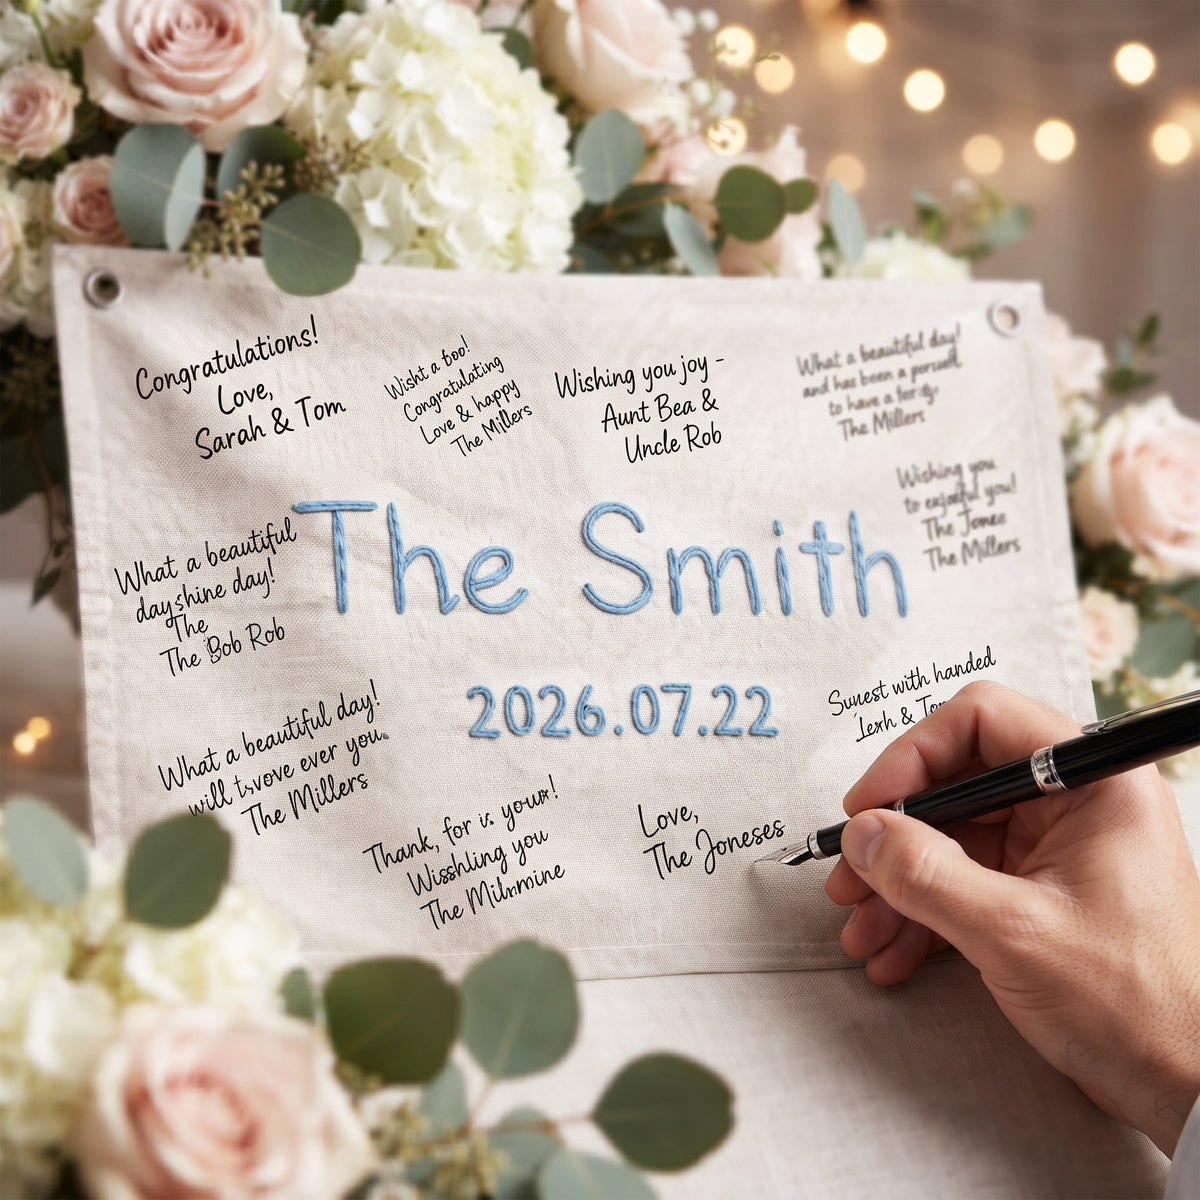 Congratulations!
Love,
Sarah & Tom
Wisht a too!
Congratulating
Love & happy
The Millers
Wishing you joy -
Aunt Bea &
Uncle Rob
What a beautiful day!
and has been a
to have a
The Millers
Wishing you
to you!
The
The Millers
The Smith
2026.07.22
What a beautiful
day shine day!
The
The Bob Rob
What a beautiful day!
will ever you.
The Millers
Thank, for is your!
Wisshling you
The
Love,
The Joneses
with handed
&